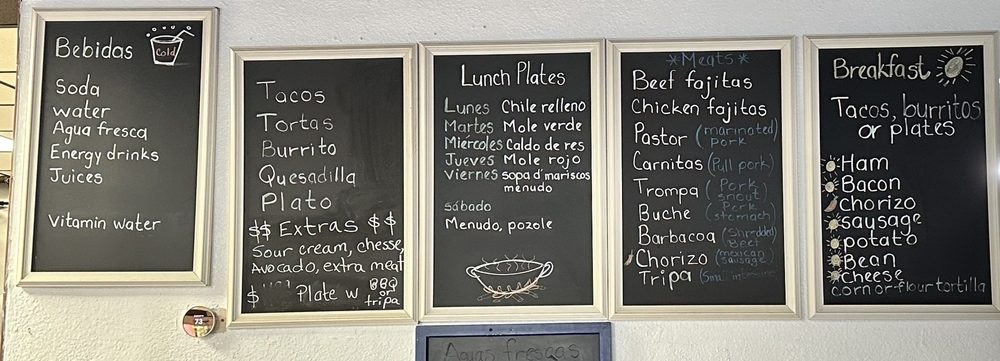 Bebidas
Cold
Soda
water
Agua fresca
Energy drinks
Juices
Vitamin water
Tacos
Tortas
Burrito
Quesadilla
Plato
$$ Extras $$
Sour cream, chesse,
Avocado, extra meat
$ Plate w BBQ
or
tripa
Lunch Plates
Lunes Chile relleno
Martes Mole verde
Miércoles Caldo de res
Jueves Mole rojo
Viernes sopa d'mariscos
menudo
sábado
Menudo, pozole
*Meats*
Beef fajitas
Chicken fajitas
Pastor (marinated
pork)
Carnitas (Pull pork)
Trompa (Pork
snout)
Buche (Pork
stomach)
Barbacoa (Shredded
Beef)
Chorizo (mexican
sausage)
Tripa (Small
Breakfast
Tacos, burritos
or plates
Ham
Bacon
Chorizo
sausage
potato
Bean
Cheese
corn or flour tortilla
73
Aguas frescas